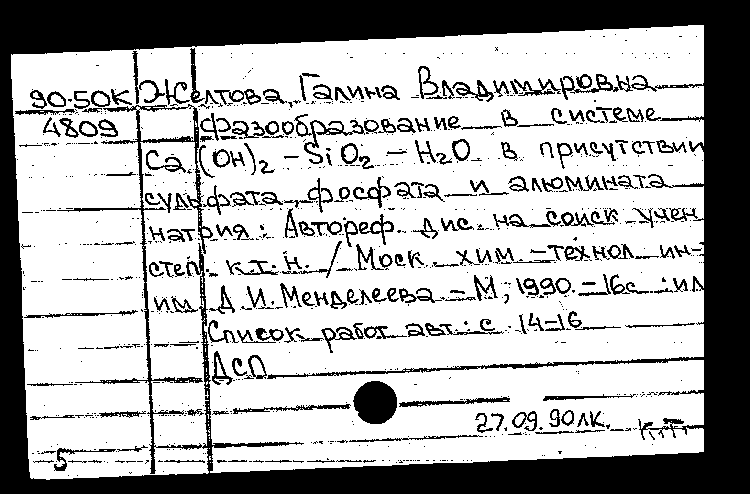 90-50К Желтова, Галина Владимировна
4809 Фазообразование в системе
Ca(OH)2 – SiO2 – H2O в присутствии
сульфата, фосфата и алюмината
натрия: Автореф. дис. на соиск учен
степ. к.т.н. / Моск. хим.-технол ин-
им Д.И. Менделеева. – М, 1990. – 16с : ил
Список работ авт.: с. 14–16
ДСП
27.09.90ЛК.
5